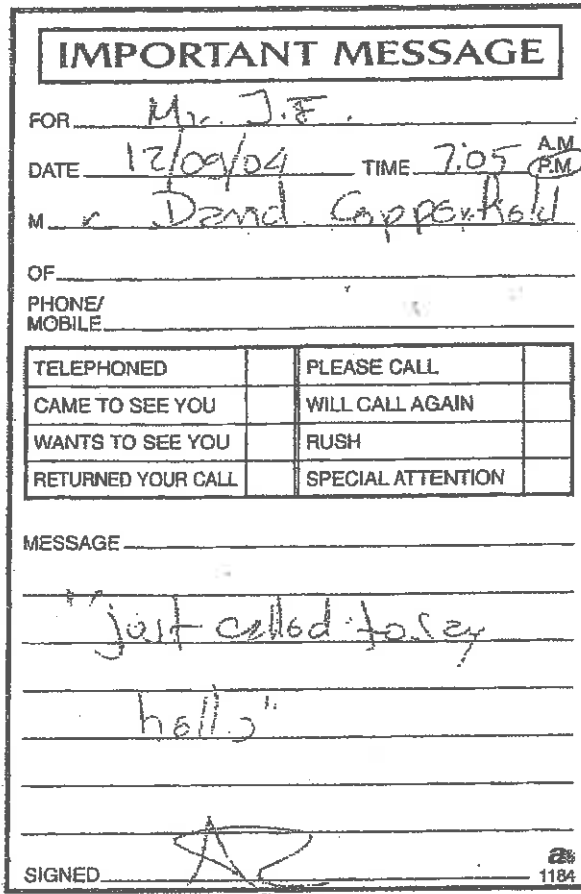 IMPORTANT MESSAGE
FOR Mr. J.E.
DATE 12/09/04 TIME 7:05 A.M P.M.
M r David Copperfield
OF
PHONE/
MOBILE
TELEPHONED PLEASE CALL
CAME TO SEE YOU WILL CALL AGAIN
WANTS TO SEE YOU RUSH
RETURNED YOUR CALL SPECIAL ATTENTION
MESSAGE
"just called to say
hello"
SIGNED
1184